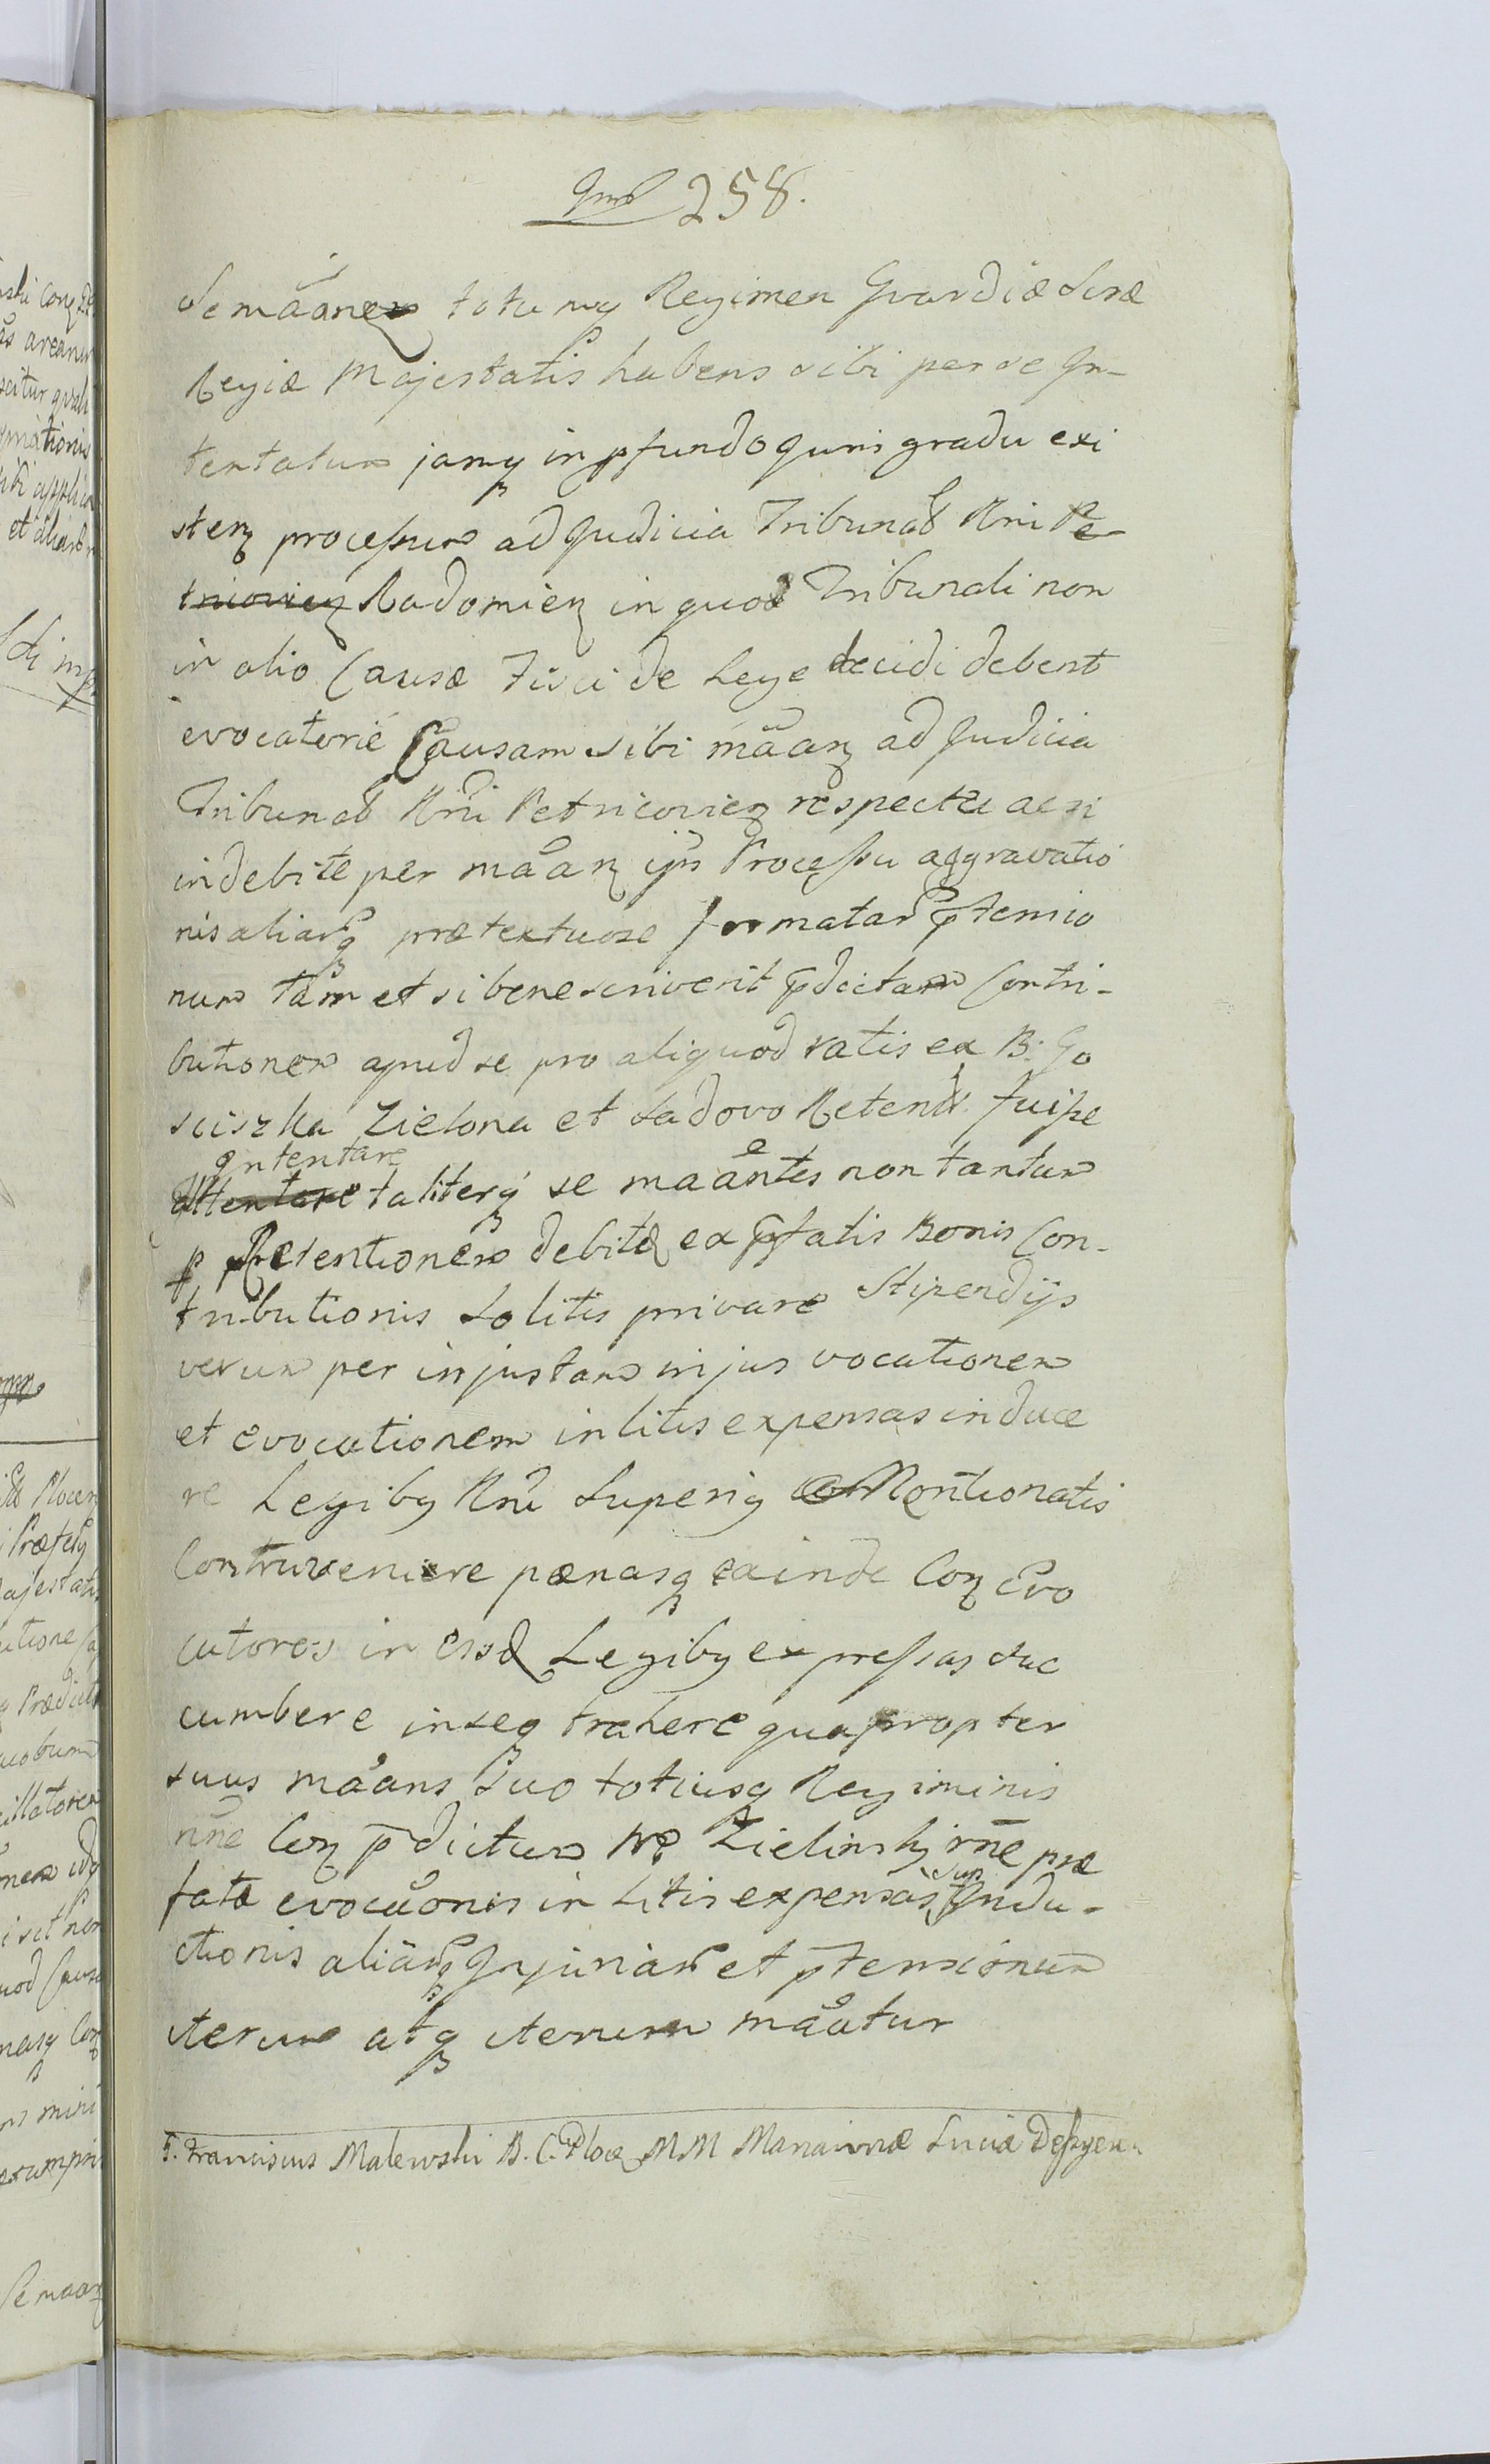 258.
se mãanem totumq Regimen Gvardiæ Suæ
Regiæ Majestatis habens sibi per se In-
tentatum jamq in pfundo Juris gradu exi
sten processum ad Judicia Tribunal Rni Pe
tricovien Radomien in quod Tribunali non
in alio Causæ Fisci de Lege decidi debent
evocatorie Causam sibi mãan ad Judicia
Tribunal Rni Petricovien respectu acsi
indebite per mãan ijs Processu aggravatio
nis aliarq prætextuose formatar ptensio
num tam et si bene sciverit pdictam Contri-
butionem apud se pro aliquod ratis ex B: Go
sciszka Zielona et Sadovo Retent fuisse
Intentare
Attentare taliterq se maantes non tantum
p Retentionem debitæ ex pfatis Bonis Con-
tributionis solitis privare Stipendijs
verum per injustam in jus vocationem
et evocationem in litis expensas induce
re Legibq Rni Superiq Mentionatis
Contravenire pænasq exinde Con Evo
catores in eisd Legibq expressas suc
cumbere in seq trahere quapropter
suus mãans suo totiusq Regiminis
nne Con pdictum M Zielinski rne præ
fatæ evocãonis in Litis expensas sup Indu-
ctionis aliarq Injuriar et ptensionum
iterum atq iterum mãatur
F. Franciscus Malewski B. C. Ploc MM Mariannæ Luciæ